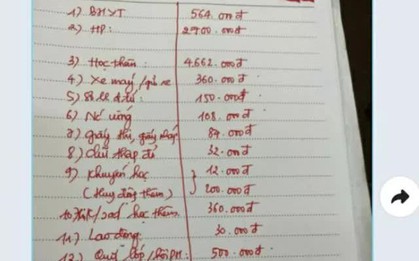 1) BHYT 564.000đ
2) HP: 2700.000đ
3) Học thêm: 4.662.000đ
4) Xe máy / 360.000đ
5) 150.000đ
6) Nước uống 108.000đ
7) giấy thi, giấy nháp 87.000đ
8) Chữ thập đỏ 32.000đ
9) Khuyến học 12.000đ
(Huy động thêm) 200.000đ
10) học thêm 360.000đ
11) Lao động 30.000đ
12) Quỹ lớp / 500.000đ